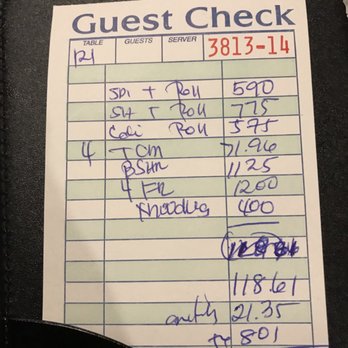 Guest Check
TABLE GUESTS SERVER 3813-14
121
SPI T Roll 590
SH T Roll 775
Cali Roll 575
4 TCM 71.96
BSHR 11.25
4 FR 1200
Noodles 400
118.61
21.35
801